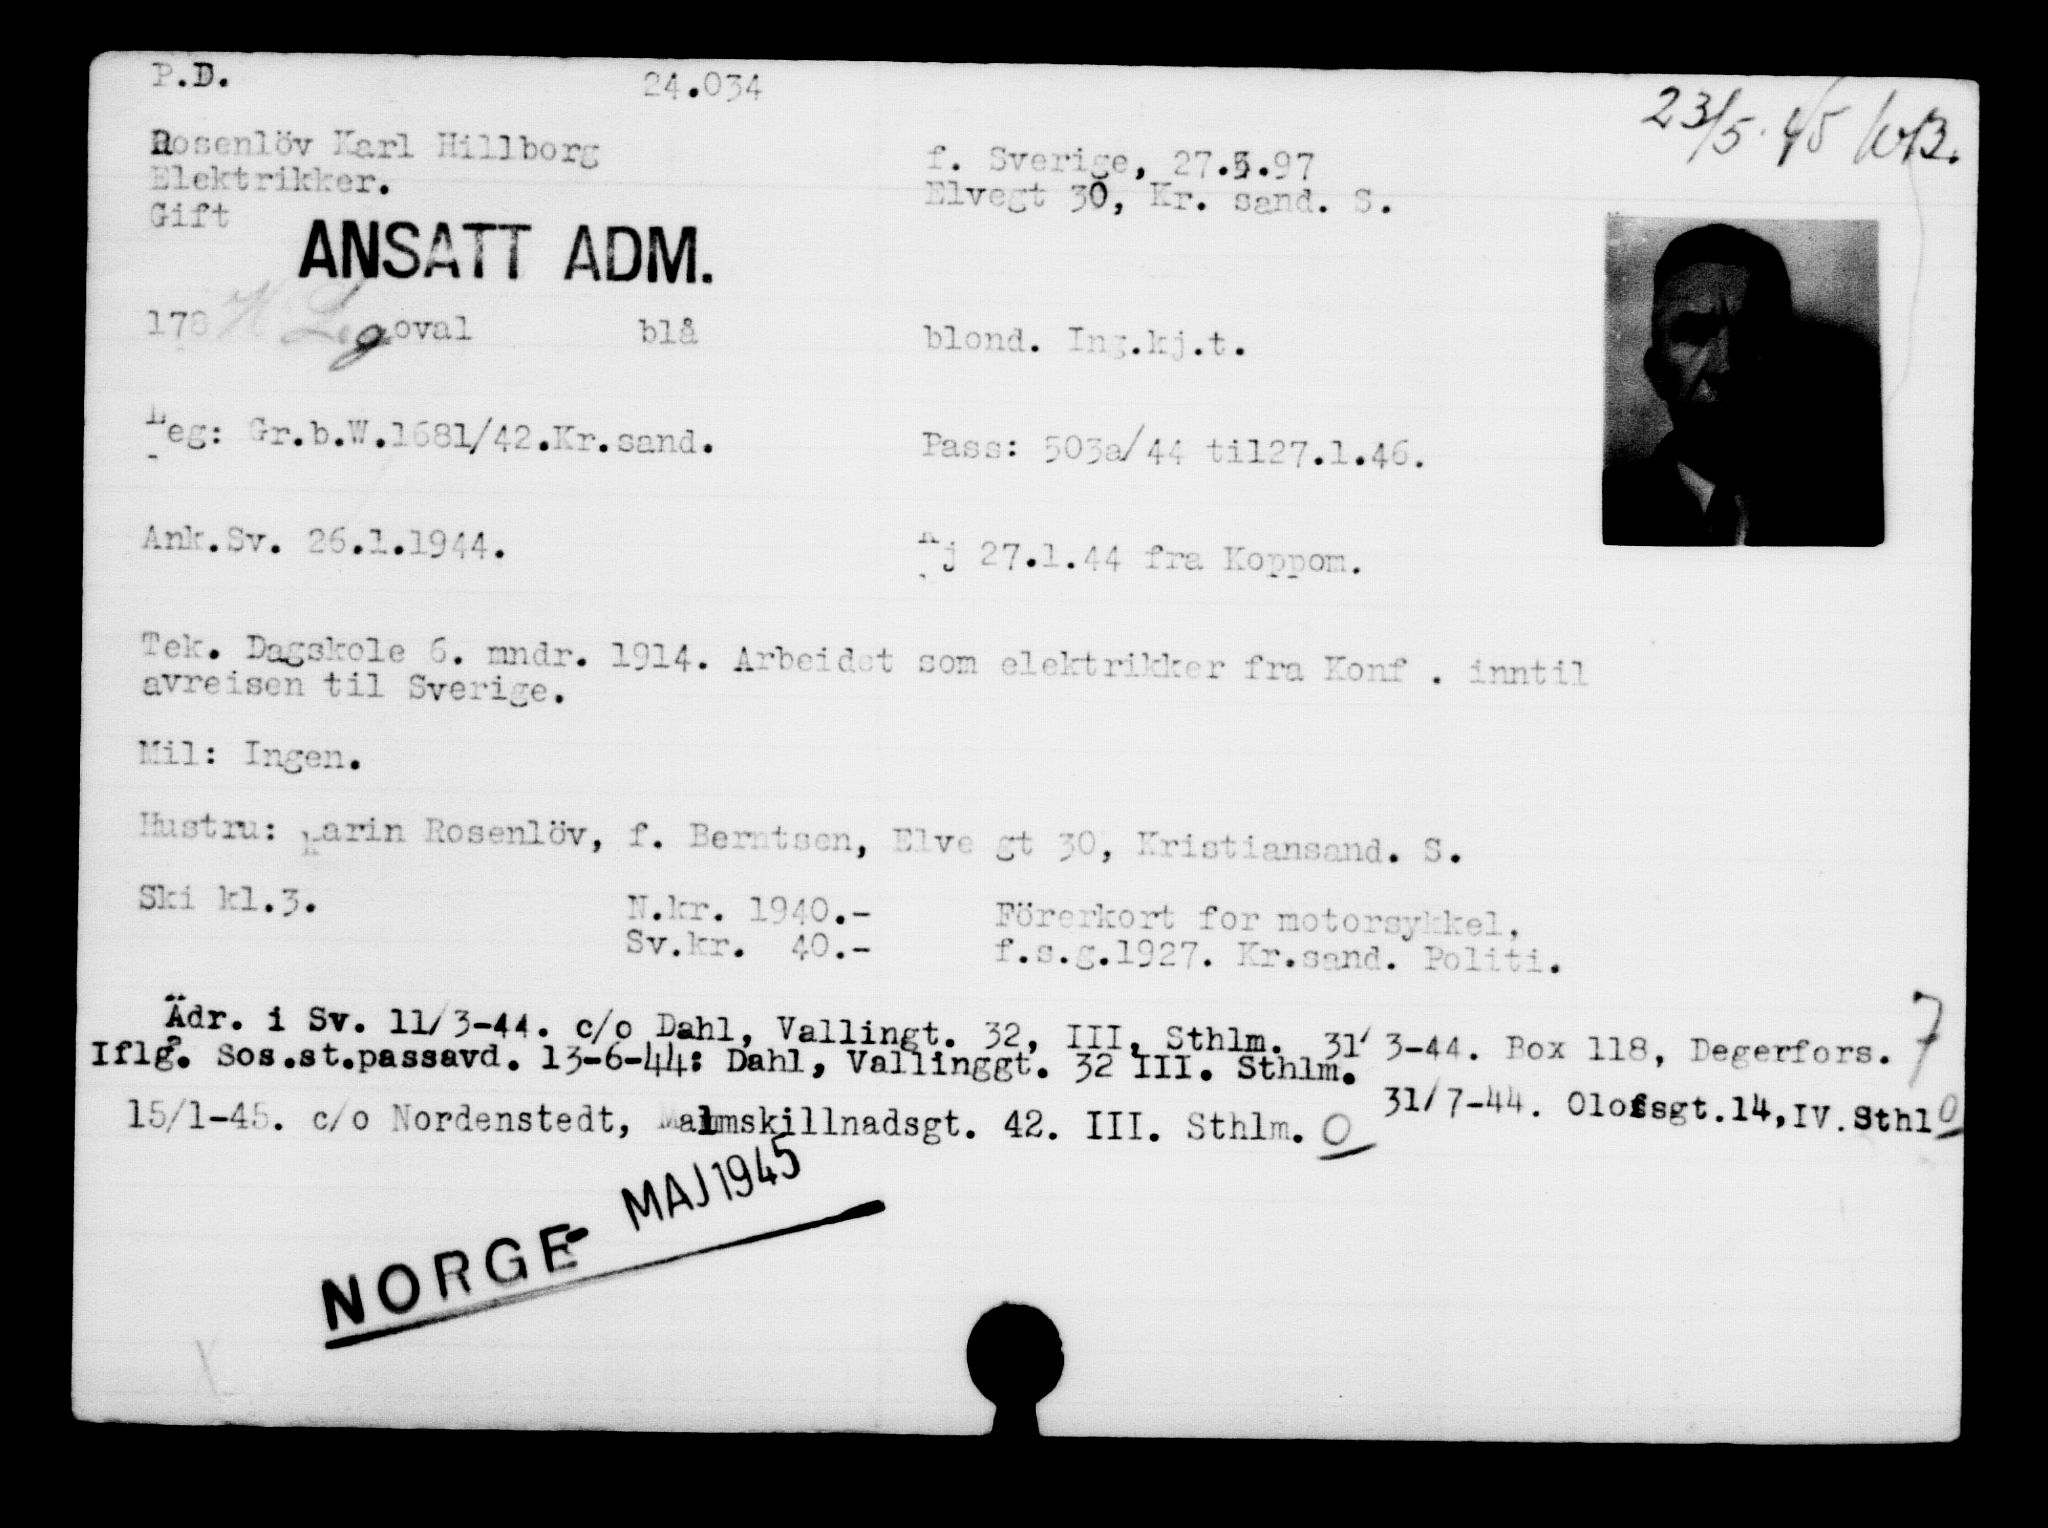 P.D. 24.034 23/5.45
Rosenlöv Karl Hillborg f. Sverige, 27.5.97
Elektrikker. Elvegt 30, Kr. sand. S.
Gift
ANSATT ADM.
178 oval blå blond. Ing.kj.t.
Leg: Gr.b.W.1681/42.Kr.sand. Pass: 503a/44 til27.1.46.
Ank.Sv. 26.1.1944. Kj 27.1.44 fra Koppom.
Tek. Dagskole 6. mndr. 1914. Arbeidet som elektrikker fra Konf . inntil
avreisen til Sverige.
Mil: Ingen.
Hustru: Karin Rosenlöv, f. Berntsen, Elve gt 30, Kristiansand. S.
Ski kl.3. N.kr. 1940.- Förerkort for motorsykkel,
Sv.kr. 40.- f.s.g.1927. Kr.sand. Politi.
Ädr. i Sv. 11/3-44. c/o Dahl, Vallingt. 32, III, Sthlm. 31/3-44. Box 118, Degerfors. 7
Iflg. Sos.st.passavd. 13-6-44: Dahl, Vallinggt. 32 III. Sthlm.
31/7-44. Olofsgt.14,IV.Sthl O
15/1-45. c/o Nordenstedt, Malmskillnadsgt. 42. III. Sthlm. O
NORGE MAJ 1945